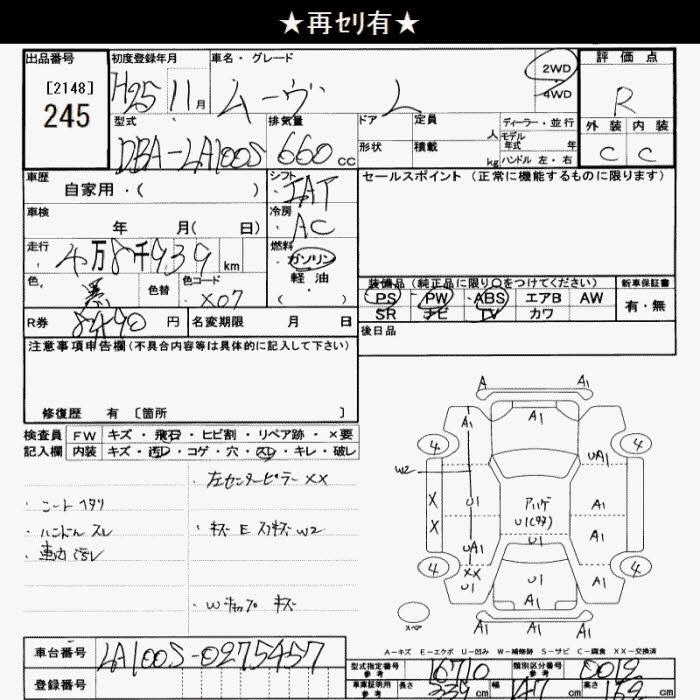 ★再ｾﾘ有★
出品番号
[2148]
245
初度登録年月
H25 11月
車名・グレード
ムーヴ L
2WD
4WD
評価点
R
外装 内装
C C
型式
DBA-LA100S
排気量
660 cc
ドア
形状
定員
人
積載
kg
ディーラー・並行
モデル
年式 年
ハンドル 左・右
車歴
自家用・( )
シフト
IAT
車検
年 月( 日)
冷房
AC
走行
4万8千939 km
燃料
ガソリン
軽油
( )
色
黒
色替
色コード
X07
R券
8490 円
名変期限 月 日
セールスポイント (正常に機能するものに限ります)
装備品 (純正品に限り○をつけてください)
PS PW ABS エアB AW
SR ナビ TV カワ
新車保証書
有・無
後日品
注意事項申告欄(不具合内容等は具体的に記入して下さい)
修復歴 有 〔箇所 〕
検査員
記入欄
FW キズ・飛石・ヒビ割・リペア跡・×要
内装 キズ・汚レ・コゲ・穴・スレ・キレ・破レ
・左センターピラーXX
・ハンドル スレ
・車内 汚レ
・キズ E スリキズ W2
A A1
A1
4 A1 4
UA1
W2
X U1 A1
X U1 A1
UA1 U1
4 XX U1 A1 4
U1
A1
A1 A1
スペア
A-キズ E-エクボ U-凹み W-補修跡 S-サビ C-腐食 XX-交換済
車台番号
LA100S-0275457
登録番号
型式指定番号
参考
16710
類別区分番号
参考
0019
車庫証明用
参考
長さ 339 cm
幅 147 cm
高さ cm